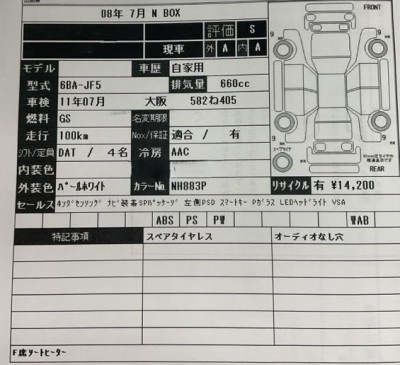 08年 7月 N BOX
評価 S
現車 外 A 内 A
モデル 車歴 自家用
型式 6BA-JF5 排気量 660cc
車検 11年07月 大阪 582ね405
燃料 GS 名変期限
走行 100km Nox/保証 適合 / 有
シフト/定員 DAT / 4名 冷房 AAC
内装色
外装色 パールホワイト カラーNo. NH883P リサイクル 有 ¥14,200
セールス ホンダセンシング ナビ装着SPパッケージ 左側PSD スマートキー Pガラス LEDヘッドライト VSA
ABS PS PW WAB
特記事項 スペアタイヤレス オーディオなし穴
F席シートヒーター
FRONT
9 9
スペアタイヤ
REAR
9 9